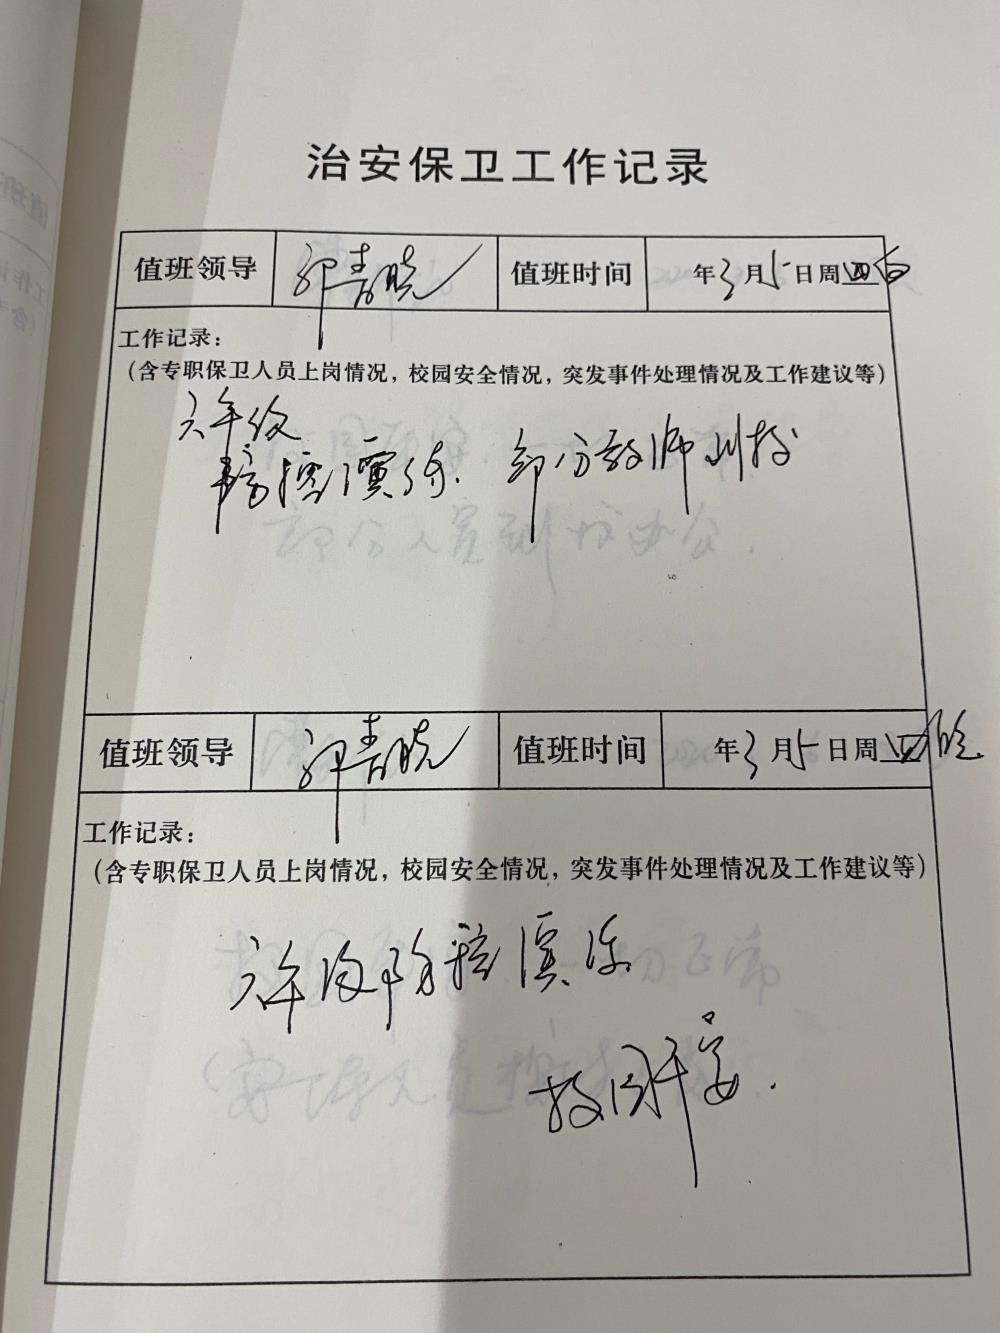 治安保卫工作记录
值班领导 郭青晓 值班时间 年3月5日周四白
工作记录：
（含专职保卫人员上岗情况，校园安全情况，突发事件处理情况及工作建议等）
六年级
防控演练. 部分教师到校
值班领导 郭青晓 值班时间 年3月5日周四晚
工作记录：
（含专职保卫人员上岗情况，校园安全情况，突发事件处理情况及工作建议等）
六年级防控演练
校园平安.